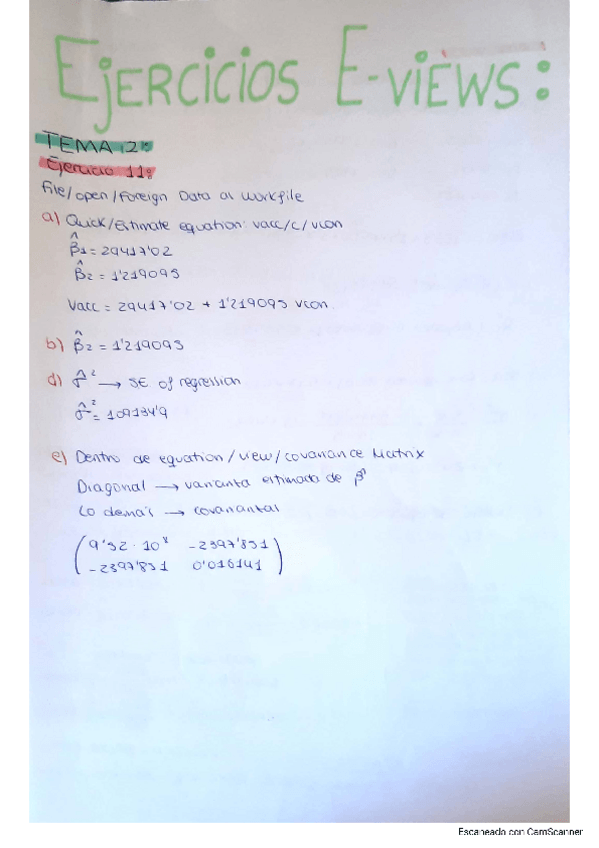 EJERCICIOS E-VIEWS:
TEMA 2:
Ejercicio 11:
File/open/Foreign Data as Workfile
a) Quick/Estimate equation: vacc/c/vcon
β̂1 = 29417'02
β̂2 = 1'219095
Vacc = 29417'02 + 1'219095 vcon
b) β̂2 = 1'219095
d) σ̂² → SE of regression
σ̂² = 109134'9
e) Dentro de equation/view/covariance Matrix
Diagonal → varianza estimada de β̂
Lo demás → covarianzas
9'52 · 10⁸ -2397'851
-2397'851 0'016141
Escaneado con CamScanner